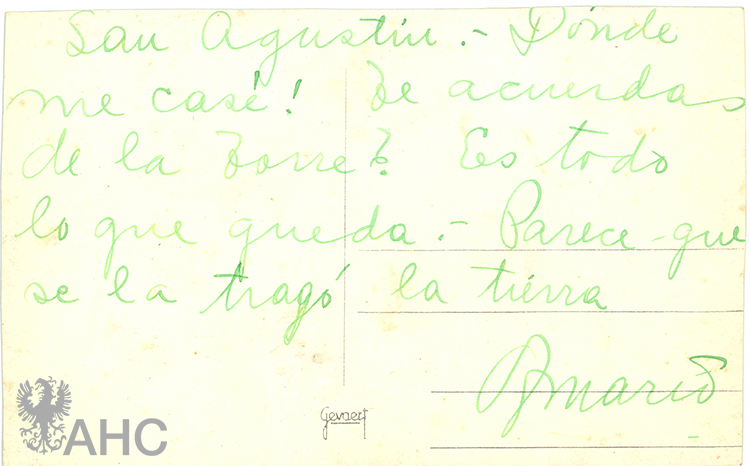 San Agustin.- Dónde
me casé! Te acuerdas
de la Torre? Es todo
lo que queda.- Parece-que
se la tragó la tierra
Gevaert
AHC